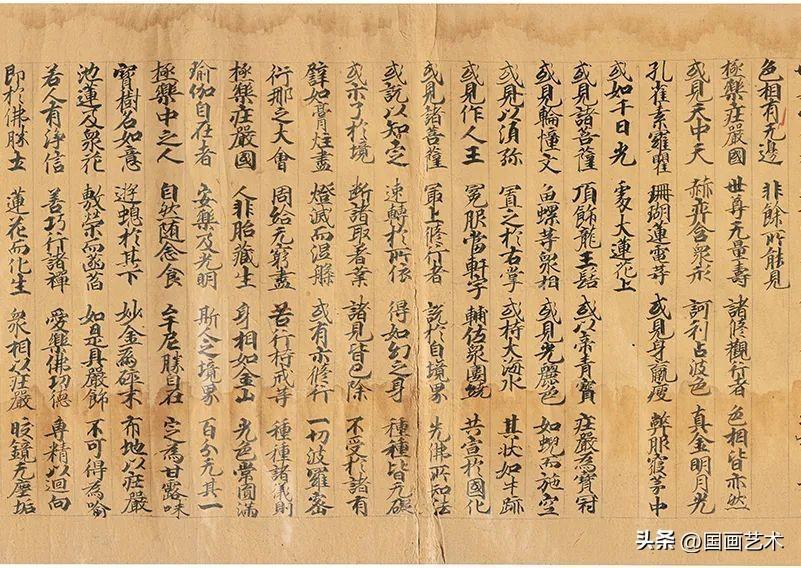 色相有无邊 非餘所能見
極樂莊嚴國 世尊无量壽 諸修觀行者 色相皆亦然
或見天中天 赫弈含衆彩 訶利占波色 真金明月光
孔雀素羅曜 珊瑚蓮電等 或見身羸瘦 弊服寢茅中
或如千日光 處大蓮花上
或見諸菩薩 頂飾龍王髻 或以帝青寶 莊嚴為寶冠
或見輪幢文 魚螺等衆相 或見光麗色 如蜺而施空
或見以須弥 置之於右掌 或持大海水 其狀如牛跡
或見作人王 冕服當軒宇 輔佐衆圍繞 共宣於國化
或見諸菩薩 最上修行者 說於自境界 先佛所知法
或說以知空 速轉於所依 得如幻之身 種種皆无礙
或示了於境 断諸取著業 諸見皆已除 不受於諸有
譬如膏炷盡 燈滅而涅槃 或有示修行 一切波羅蜜
行那之大會 周給无窮盡 苦行持戒等 種種諸儀則
極樂莊嚴國 人非胎藏生 身相如金山 光色常圓滿
瑜伽自在者 安樂及光明 斯人之境界 百分无其一
極樂中之人 自然随念食 牟尼勝自在 定為甘露味
寶樹名如意 遊憩於其下 妙金為碎末 布地以莊嚴
池蓮及衆花 敷榮而菡萏 如是具嚴飾 不可得為喻
若人有淨信 善巧行諸禪 愛樂佛功德 專精以迴向
即於佛勝土 蓮花而化生 衆相以莊嚴 皎鏡无塵垢
头条 @国画艺术